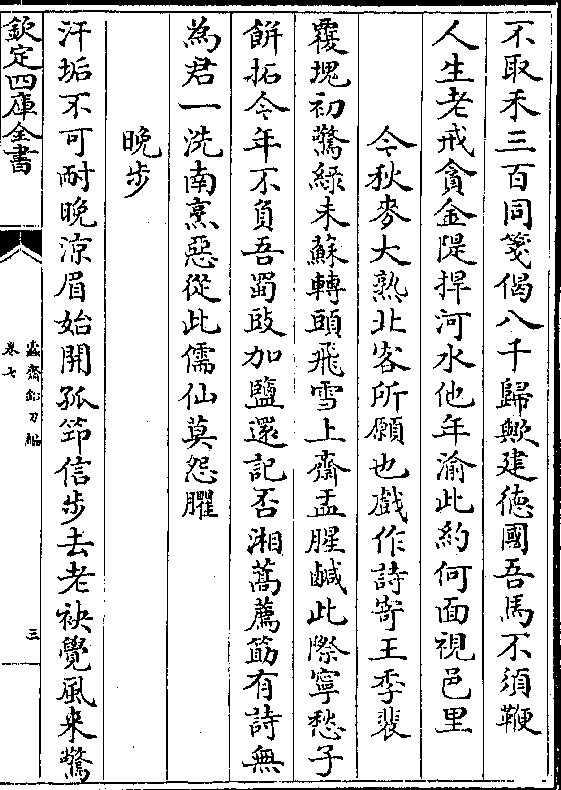 不取禾三百同箋偈八千歸歟建德國吾馬不須鞭
人生老戒貪金隄捍河水他年渝此約何面視邑里
今秋麥大熟北客所願也戲作詩寄王季裴
覆塊初驚綠未蘇轉頭飛雪上齋盂腥鹹此際寧愁子
餅拓今年不負吾蜀豉加鹽還記否湘蒿薦筯有詩無
為君一洗南烹惡從此儒仙莫怨臞
晚步
汗垢不可耐晚涼眉始開孤筇信步去老袂覺風来驚
欽定四庫全書
盧齋鉛刀編
卷七
三